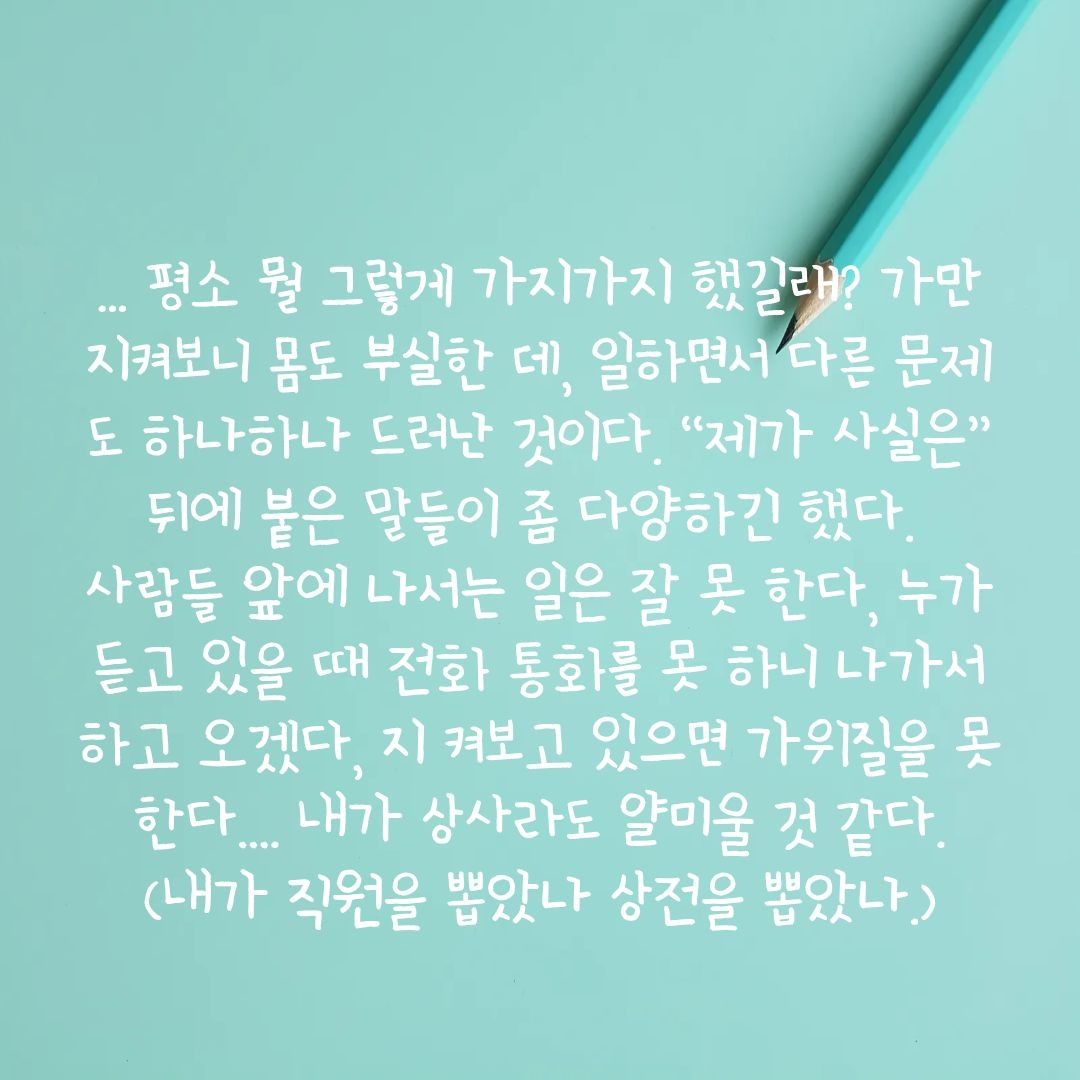 ... 평소 뭘 그렇게 가지가지 했길래? 가만
지켜보니 몸도 부실한 데, 일하면서 다른 문제
도 하나하나 드러난 것이다. “제가 사실은”
뒤에 붙은 말들이 좀 다양하긴 했다.
사람들 앞에 나서는 일은 잘 못 한다, 누가
듣고 있을 때 전화 통화를 못 하니 나가서
하고 오겠다, 지 켜보고 있으면 가위질을 못
한다.... 내가 상사라도 얄미울 것 같다.
(내가 직원을 뽑았나 상전을 뽑았나.)